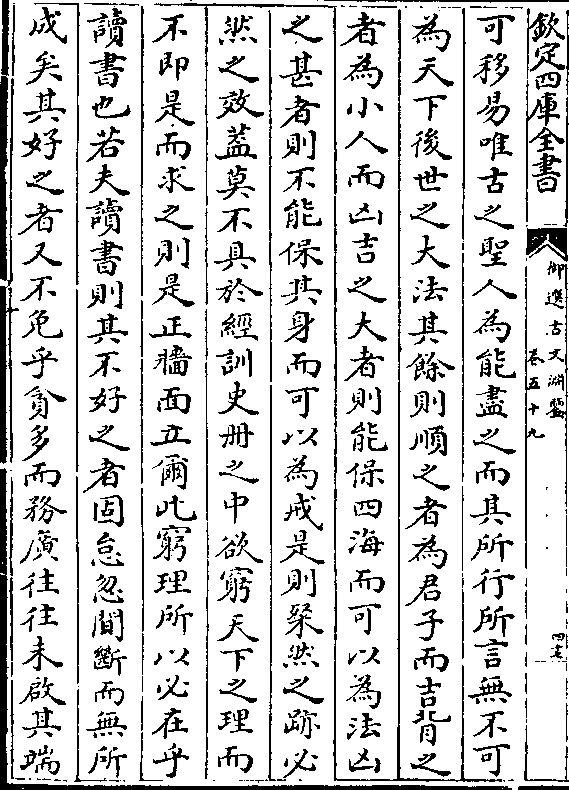 欽定四庫全書
御選古文淵鑒
卷五十九
可移易唯古之聖人為能盡之而其所行所言無不可
為天下後世之大法其餘則順之者為君子而吉背之
者為小人而凶吉之大者則能保四海而可以為法凶
之甚者則不能保其身而可以為戒是則粲然之跡必
然之效蓋莫不具於經訓史冊之中欲窮天下之理而
不即是而求之則是正牆面而立爾此窮理所以必在乎
讀書也若夫讀書則其不好之者固怠忽間斷而無所
成矣其好之者又不免乎貪多而務廣往往未啟其端